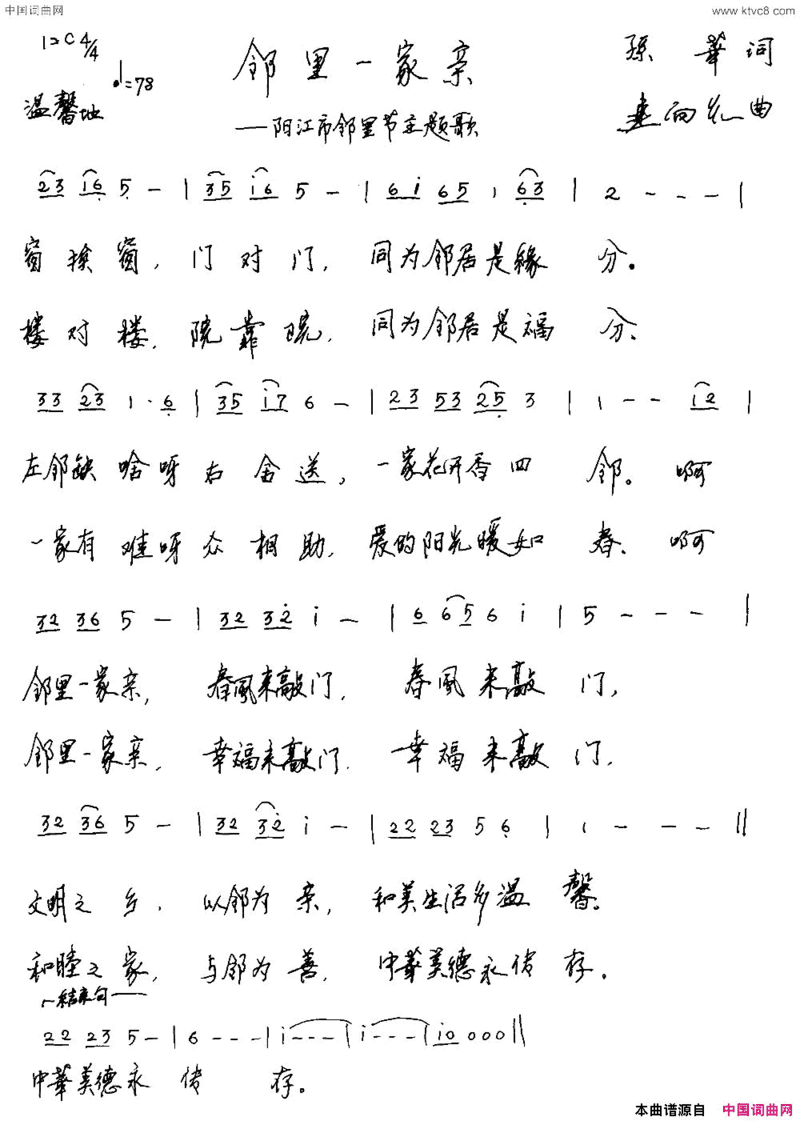 中国词曲网 www.ktvc8.com
1=C 4/4
♩=78
邻里一家亲
孫華词
温馨地
——阳江市邻里节主题歌
曲
23 i6 5 - | 35 i6 5 - | 6i 65 1 63 | 2 - - - |
窗挨窗,门对门,同为邻居是缘分。
楼对楼,院靠院,同为邻居是福分、
33 23 1· 6 | 35 i7 6 - | 23 53 25 3 | 1 - - 12 |
左邻缺啥呀右舍送,一家花开香四邻。啊
一家有难呀众相助,爱的阳光暖如春、啊
32 36 5 - | 32 32 i - | 6 65 6 i | 5 - - - |
邻里一家亲,春風来敲门,春風来敲门,
邻里一家亲,幸福来敲门.幸福来敲门,
32 36 5 - | 32 32 i - | 22 23 5 6 | 1 - - - ||
文明之乡,以邻为亲,和美生活多温馨。
和睦之家,与邻为善,中華美德永传存。
结束句
22 23 5 - | 6 - - - | i - - - | i - - - | i0 0 0 0 ||
中華美德永传存。
本曲谱源自 中国词曲网